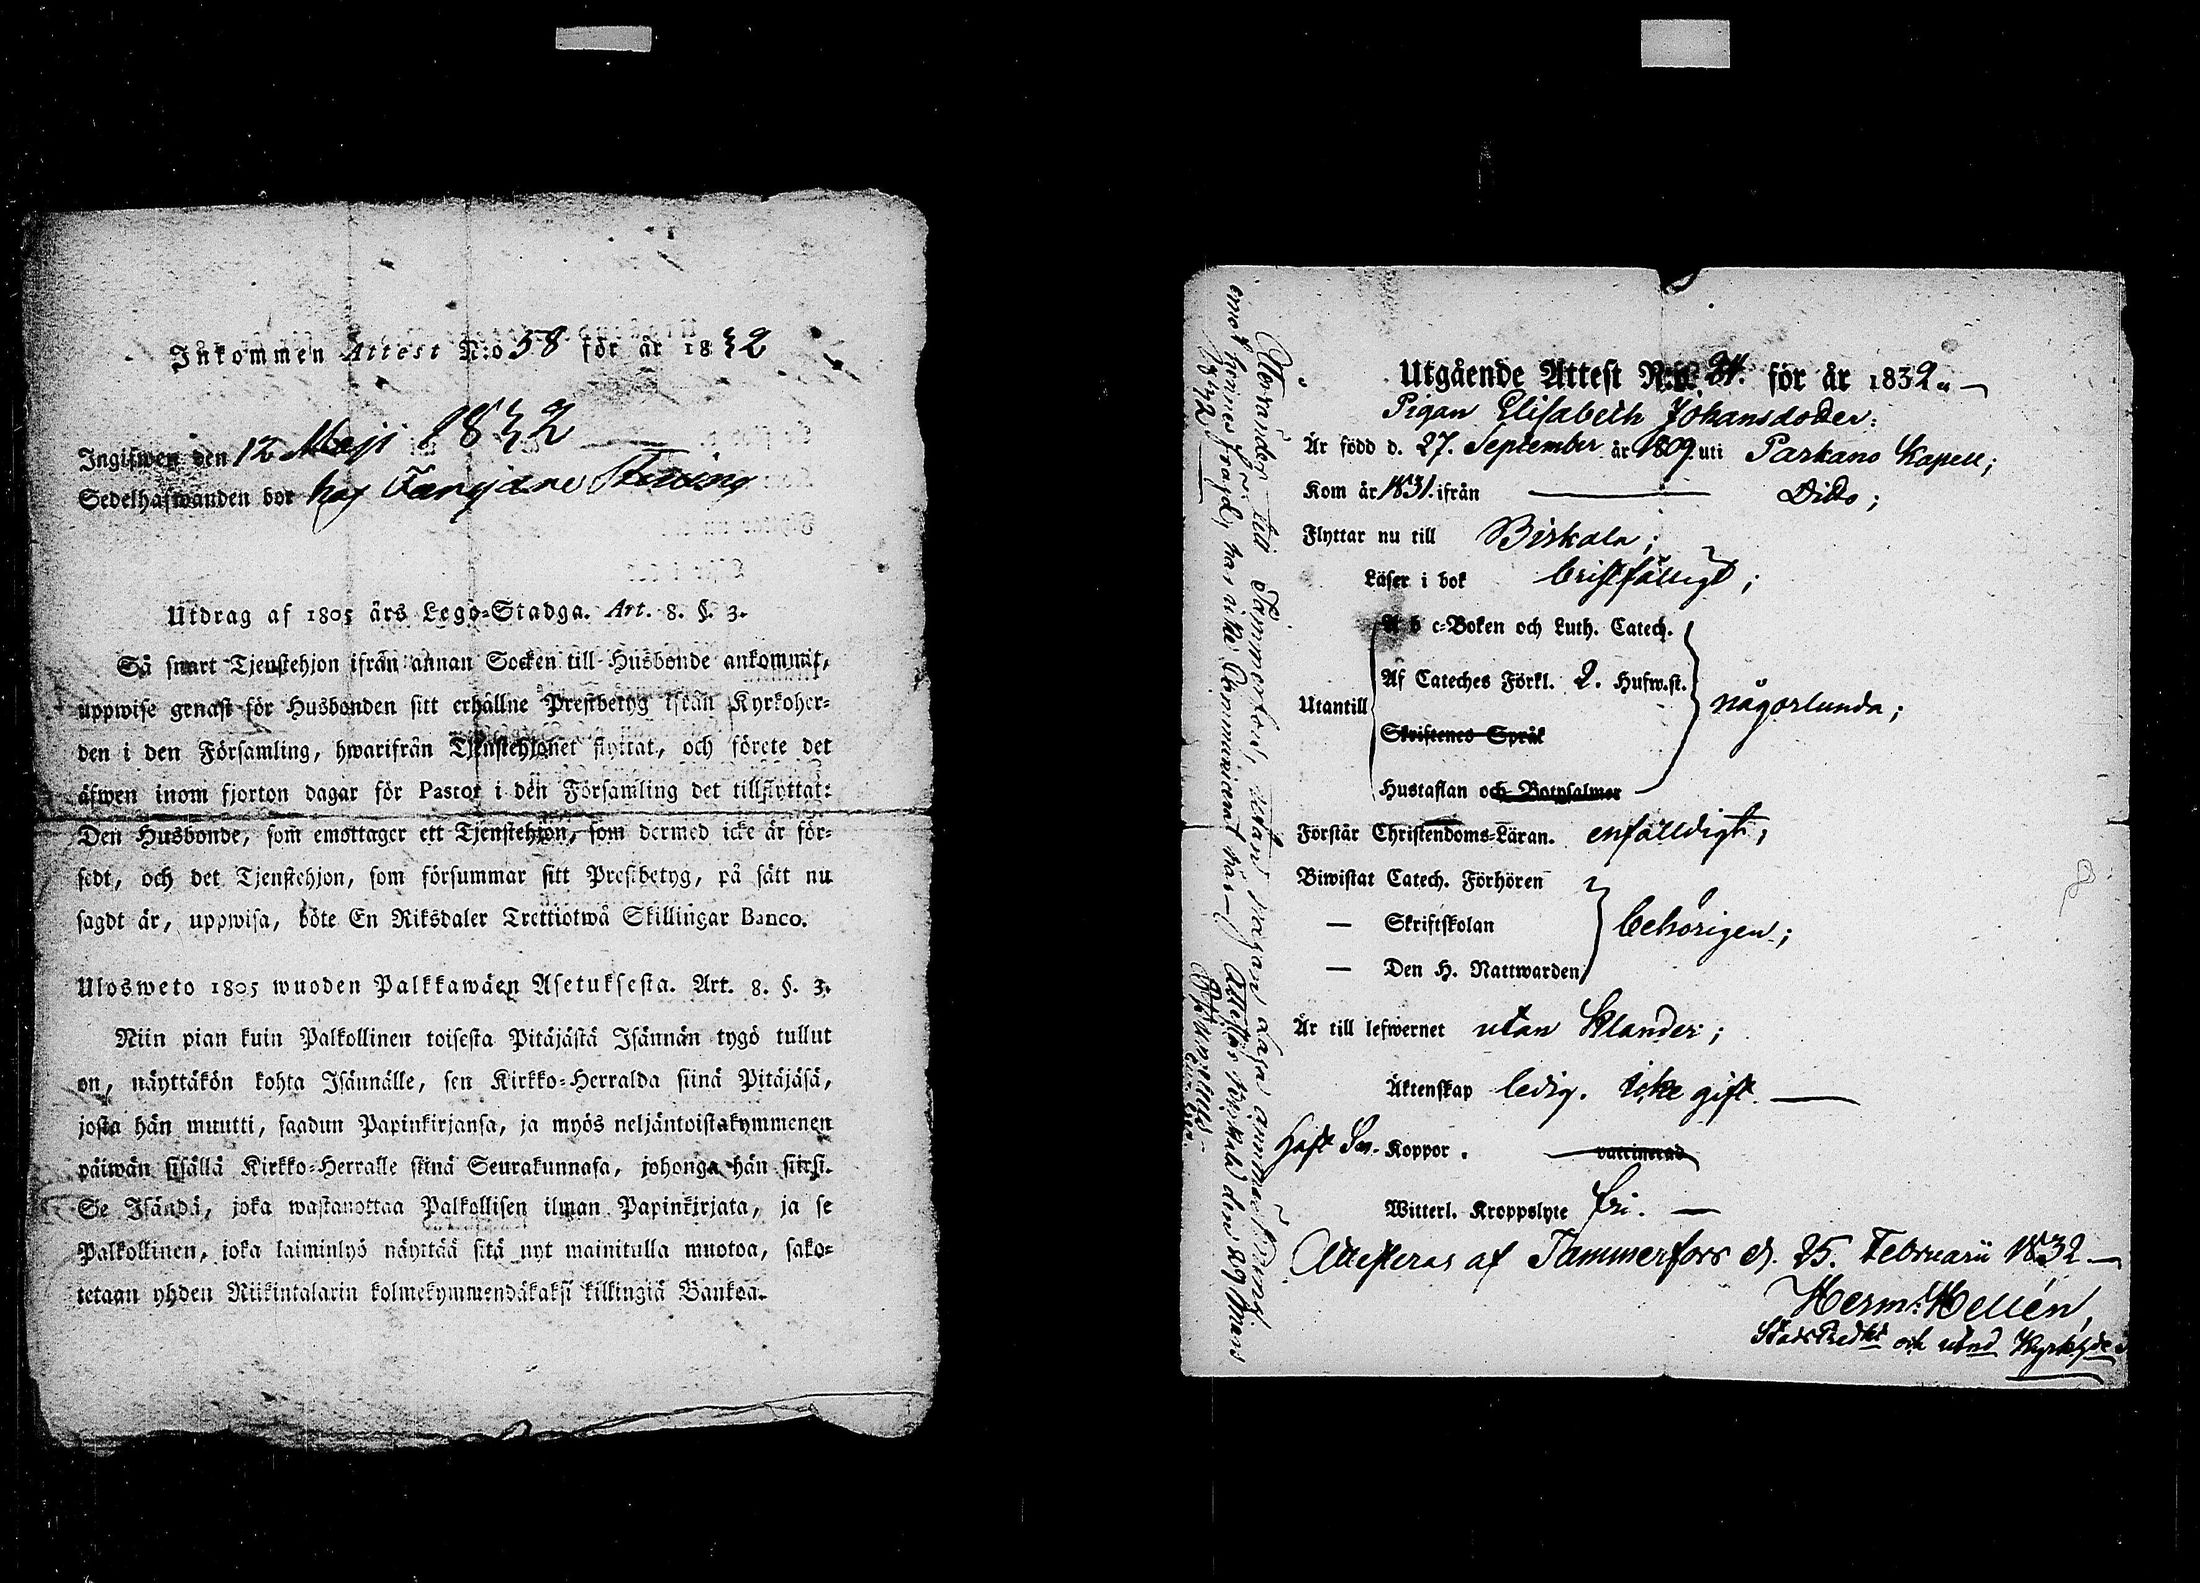 Inkommen Attest N:o 58 för år 1832
Ingifwen den 12 Maji 1832
Sedelhafwanden bor hos
Utdrag af 1805 års Lego-Stadga. Art. 8. §. 3.
Så snart Tjenstehjon ifrån annan Socken till Husbonde ankommit,
uppwise genast för Husbonden sitt erhållne Prestbetyg ifrån Kyrkoher-
den i den Församling, hwarifrån Tjenstehjonet flyttat, och förete det
äfwen inom fjorton dagar för Pastor i den Församling det tillflyttat:
Den Husbonde, som emottager ett Tjenstehjon, som dermed icke är för-
sedt, och det Tjenstehjon, som försummar sitt Prestbetyg, på sätt nu
sagdt är, uppwisa, böte En Riksdaler Trettiotwå Skillingar Banco.
Ulosweto 1805 wuoden Palkkawäen Asetuksesta. Art. 8. §. 3.
Niin pian kuin Palkollinen toisesta Pitäjästä Isännän tygö tullut
on, näyttäkön kohta Isännälle, sen Kirkko-Herralda siinä Pitäjäsä,
josta hän muutti, saadun Papinkirjansa, ja myös neljäntoistakymmenen
päiwän sisällä Kirkko-Herralle siinä Seurakunnasa, johonga hän siirsi.
Se Isändä, joka wastanottaa Palkollisen ilman Papinkirjata, ja se
Palkollinen, joka laiminlyö näyttää sitä nyt mainitulla muotoa, sako-
tetaan yhden Riikintalarin kolmekymmendäkaksi killingiä Bankoa.
Utgående Attest N:o 31. för år 1832.
Pigan Elisabeth Johansdoter:
Är född d. 27. September år 1809. uti Parkano Kapell;
Kom år 1831. ifrån Dito;
Flyttar nu till Birkala;
Läser i bok bristfälligt;
A b c-Boken och Luth. Catech.
Af Cateches Förkl. 2. Hufw.st.
Utantill någorlunda;
Skriftenes Språk
Hustaflan och Botpsalmer
Förstår Christendoms-Läran. enfaldigt;
Biwistat Catech. Förhören
— Skriftskolan behörigen;
— Den H. Nattwarden
Är till lefwernet utan Klander;
Äktenskap ledig. icke gift.
Haft Koppor. vaccinerad
Witterl. Kroppslyte fri.
Attesteras af Tammerfors d. 25. Februarii 1832
Herm: Hellén,
och Kyrkohde
emot henne har icke Communicerat här
Attesteras den 29 Mars
1832